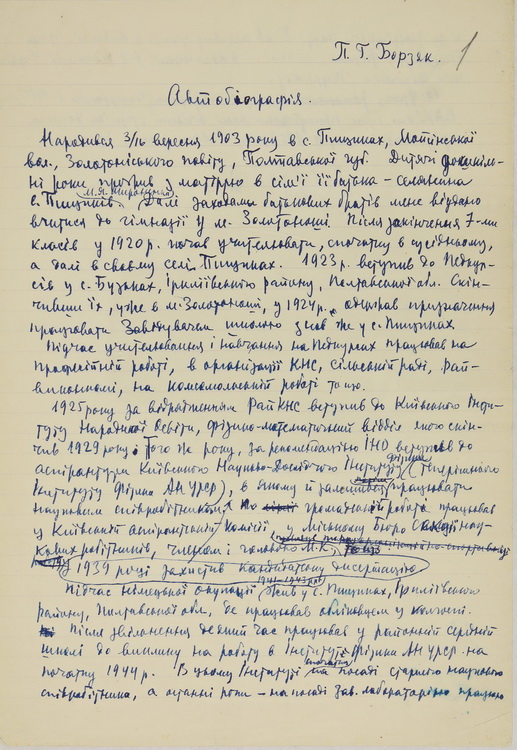 П. Г. Борзяк. 1
Автобіографія.
Народився 3/16 вересня 1903 року в с. Пищиках, Мотіїнської
вол., Золотоніського повіту, Полтавської губ. Дитячі дошкіль-
ні роки прожив з матір'ю в сім'ї її батька – селянина
с. Пищиків М.Я. Далі заходами батькових братів мене віддано
вчитися до гімназії у м. Золотоноші. Після закінчення 7-ми
класів у 1920 р. почав учителювати, спочатку в сусідньому,
а далі в своєму селі Пищиках. 1923 р. вступив до Педкур-
сів у с. Бузьках, Іркліївського району, Полтавської обл. Скін-
чивши їх, уже в м. Золотоноші, у 1924 р. одержав призначення
працювати Завідувачем школою знов же у с. Пищиках
Підчас учителювання і навчання на Педкурсах працював на
профспілній роботі, в організації КНС, сільській раді, Рай-
виконкомі, на комсомольській роботі тощо.
1925 року за відрядженням РайКНС вступив до Київського Інсти-
туту Народної Освіти, фізико-математичний відділ якого скін-
чив 1929 року і того ж року, за рекомендацією ІНО вступив до
аспірантури Київського Науково-Дослідного Інституту фізики (теперішнього
Інституту Фізики АН УРСР), в якому й залишився працювати
науковим співробітником. По громадській роботі працював
у Київській аспірантській Комісії, у Міському Бюро Секції нау-
кових робітників, членом і головою М.К.
У 1939 році захистив кандидатську дисертацію
Підчас німецької окупації 1941-1943 рр. жив у с. Пищиках, Іркліївського
району, Полтавської обл., де працював обліковцем у колгоспі.
Після звільнення деякий час працював у районній середній
школі до виклику на роботу в Інституті Фізики АН УРСР на
початку 1944 р. В цьому Інституті спочатку на посаді старшого наукового
співробітника, а останні роки – на посаді зав. лабораторією працюю